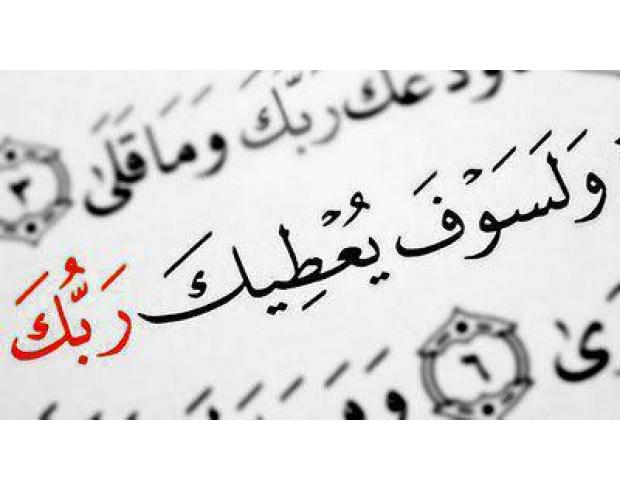 ودعك ربك وما قلى ٣
وَلَسَوْفَ يُعْطِيكَ رَبُّكَ
ى ٦